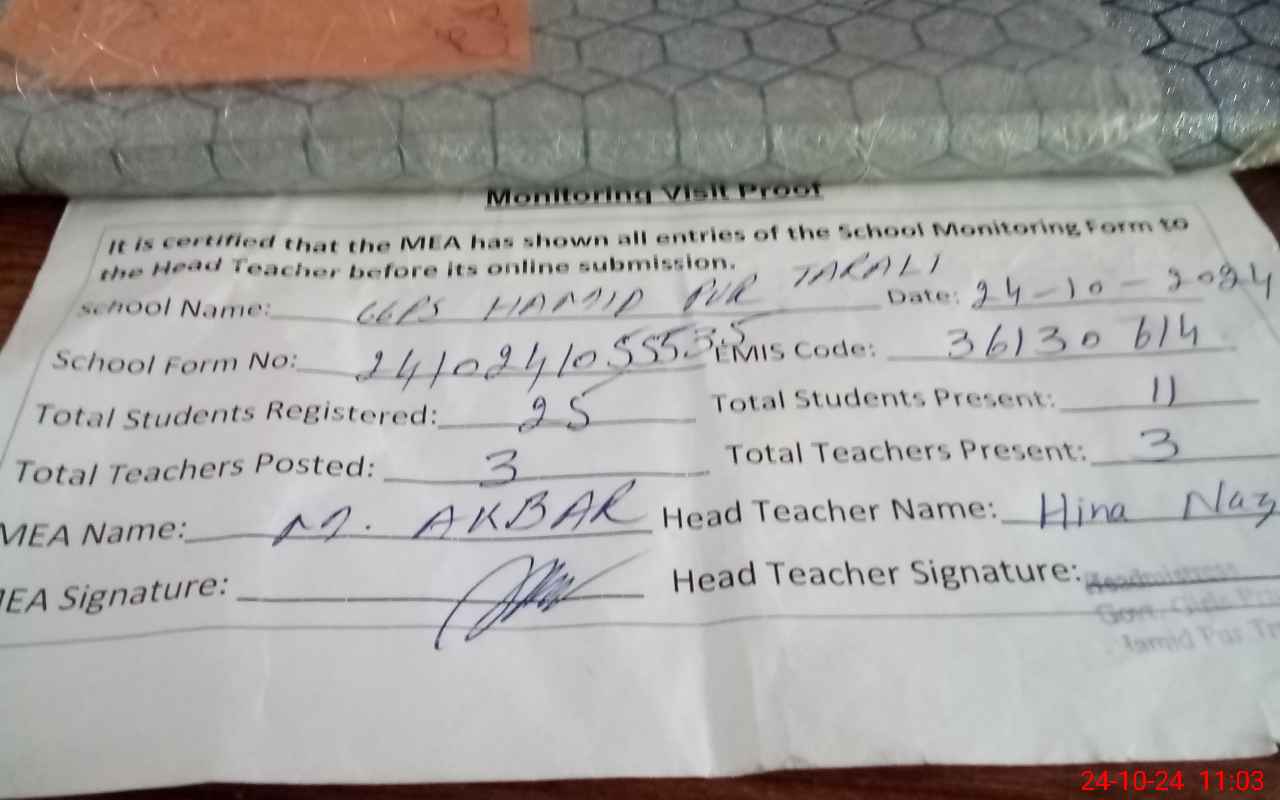 Monitoring Visit Proof
It is certified that the MEA has shown all entries of the School Monitoring Form to
the Head Teacher before its online submission.
School Name: GGPS HAMID PUR TARALI Date: 24-10-2024
School Form No: 241024105553.5 EMIS Code: 36130614
Total Students Registered: 25 Total Students Present: 11
Total Teachers Posted: 3 Total Teachers Present: 3
MEA Name: M. AKBAR Head Teacher Name: Hina Naz
EA Signature: Head Teacher Signature:
Headmistress
Govt. Girls Pri
Hamid Pur Tr
24-10-24 11:03